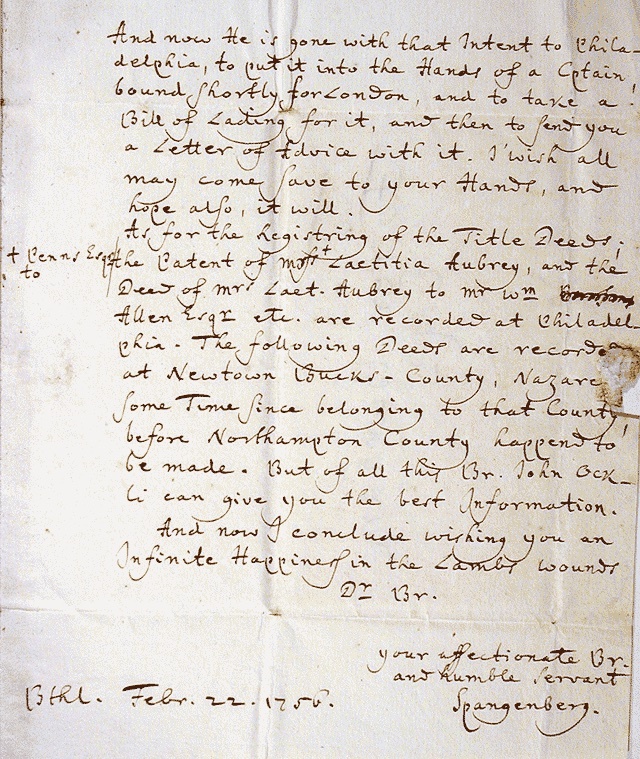 And now He is gone with that Intent to Phila-
delphia, to put it into the Hands of a Cptain,
bound shortly for London, and to take a
Bill of Lading for it, and then to send you
a Letter of Advice with it. I wish all
may come save to your Hands, and
hope also, it will.
As for the Registring of the Title Deeds;
+ Penns Esqr
to
the Patent of + Laetitia Aubrey, and the
Deed of mrs Laet. Aubrey to mr Wm
Allen Esqr etc. are recorded at Philadel
phia. The following Deeds are recorded
at Newtown Bucks-County, Nazare
some Time since belonging to that County,
before Northampton County happend to
be made. But of all this Br. John Ock-
li can give you the best Information.
And now I conclude wishing you an
Infinite Happiness in the Lambs wounds
Dr Br.
your affectionate Br.
and humble Servant
Spangenberg.
Bthl. Febr. 22. 1756.